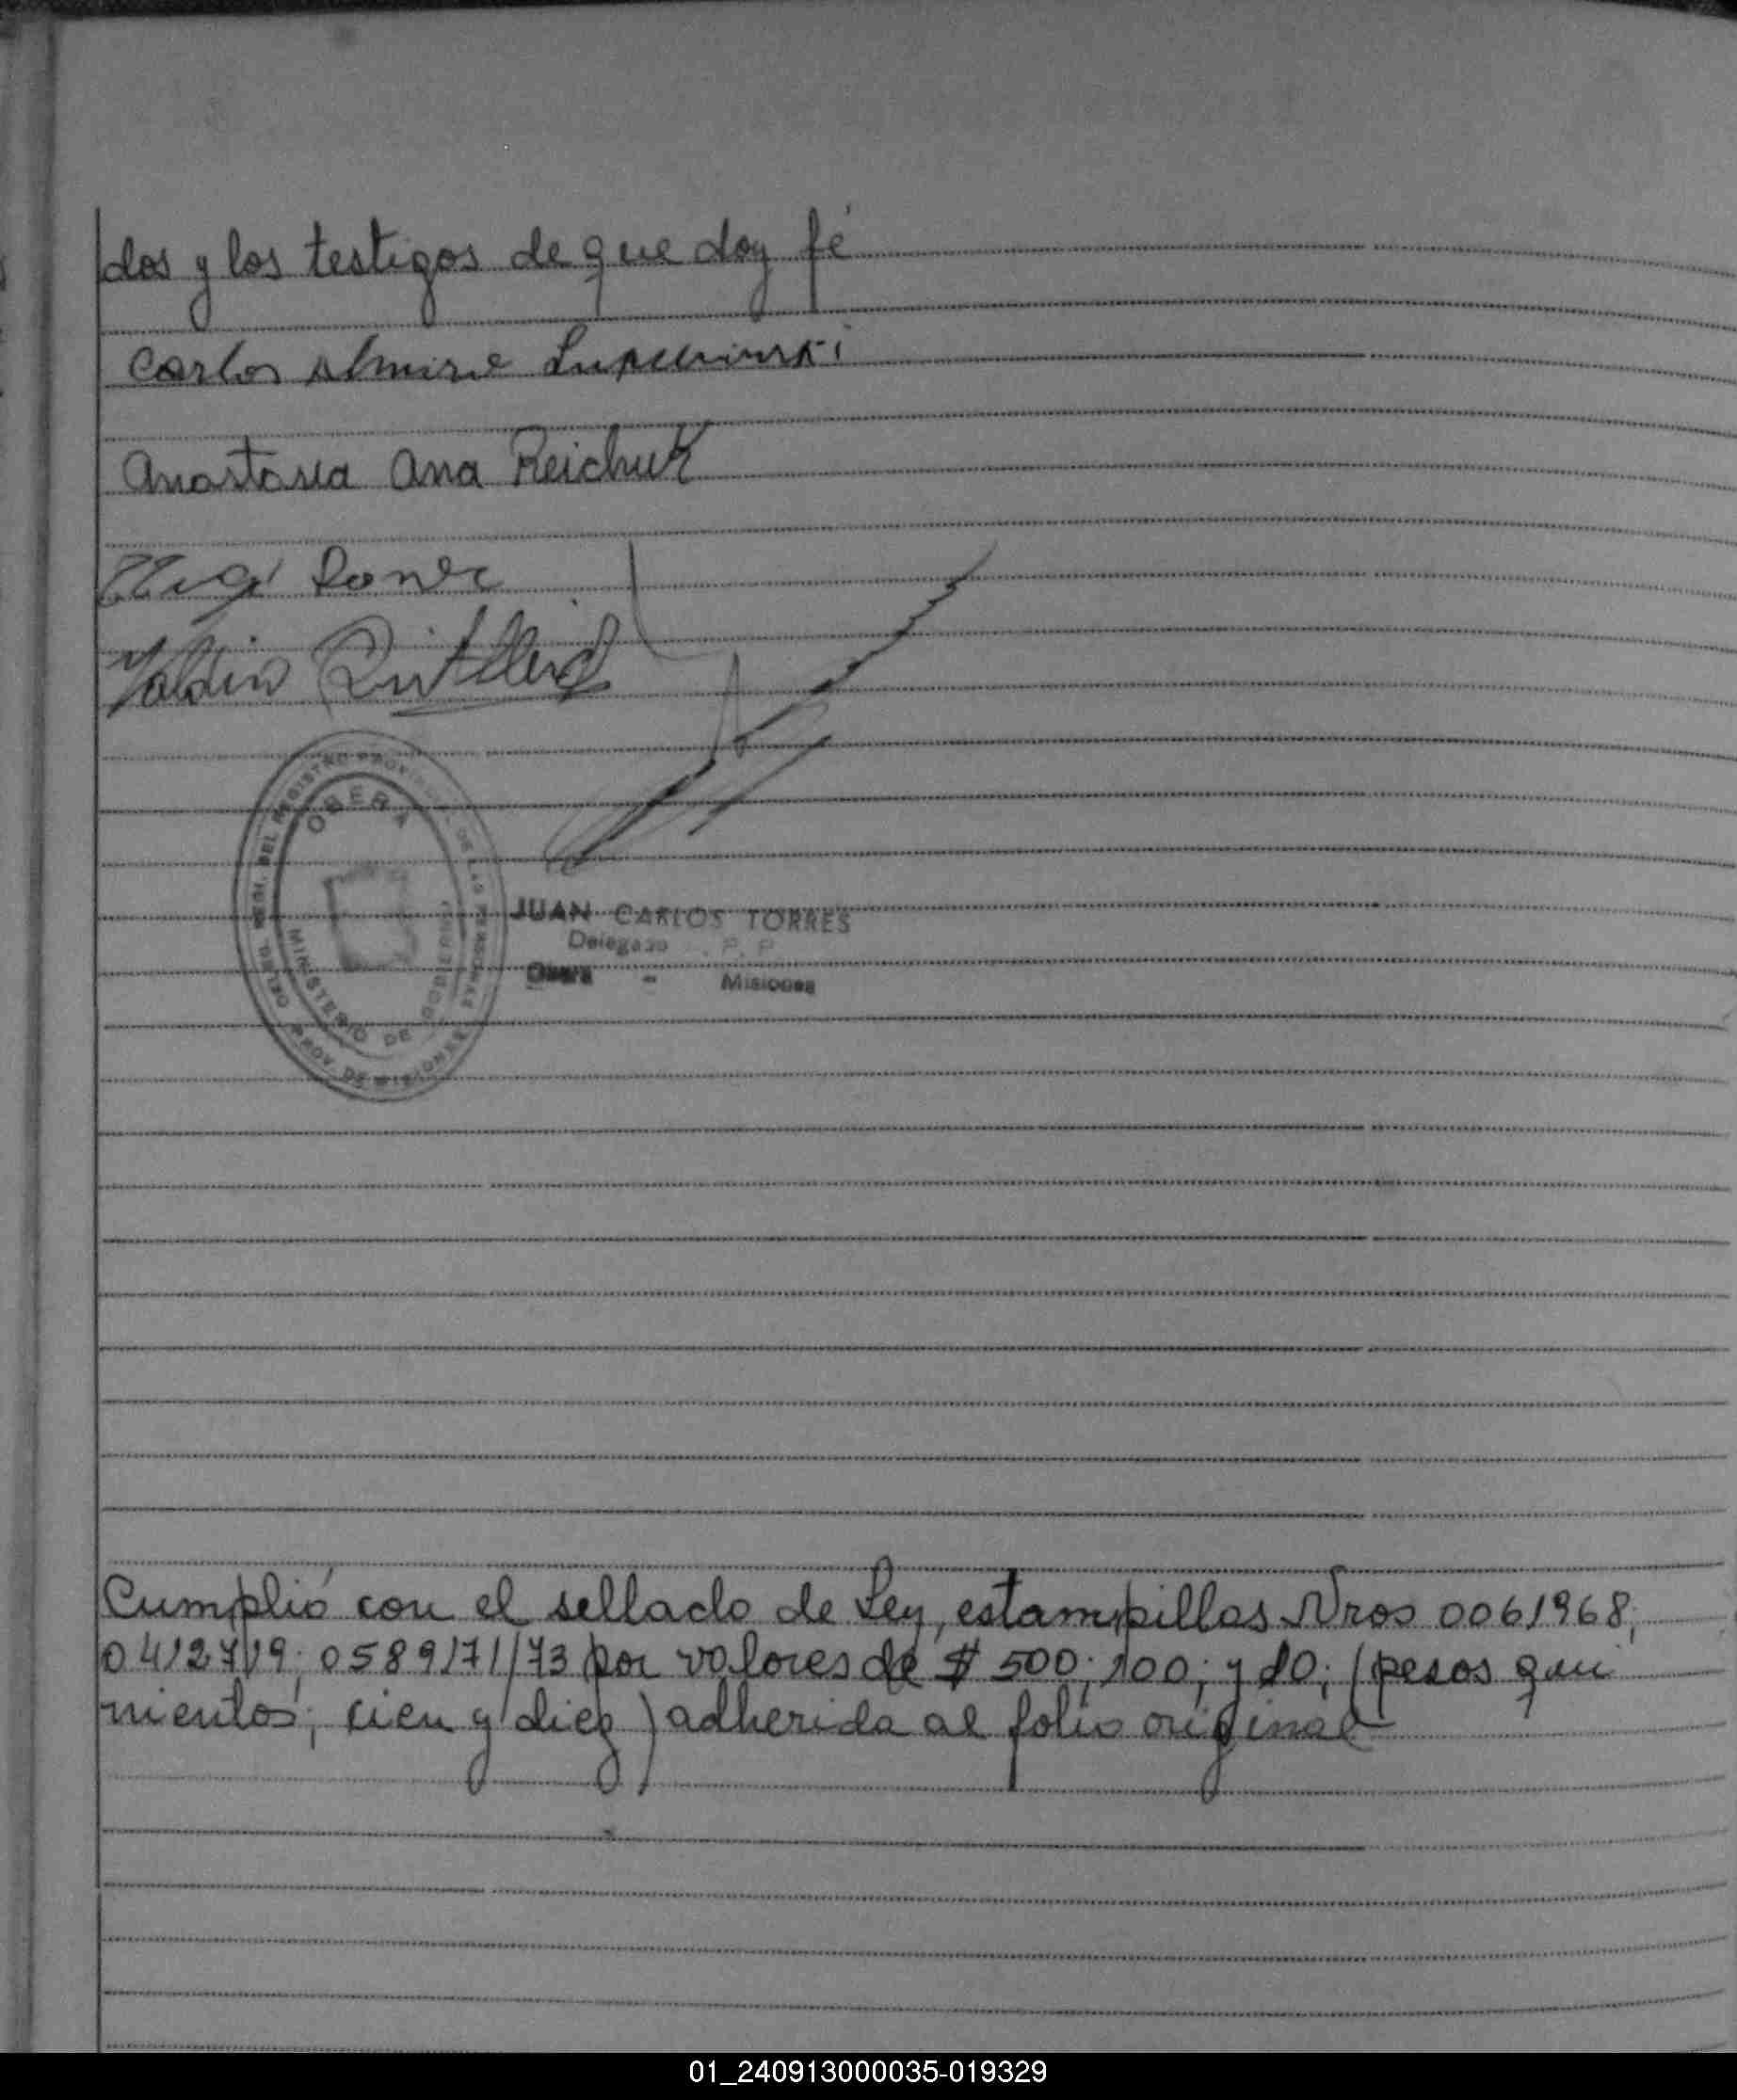 dos y los testigos de que doy fé
Carlos Almire
Anastasia Ana Reichuk
OBERA
MINISTERIO DE GOBIERNO
PROV. DE MISIONES
JUAN CARLOS TORRES
Delegado R. P. P.
Obera - Misiones
Cumplió con el sellado de Ley, estampillas Nros 0061968;
0412719; 0589171/73 por valores de $ 500; 100; y 10; (pesos qui
nientos; cien y diez) adherida al folio original
01_240913000035-019329